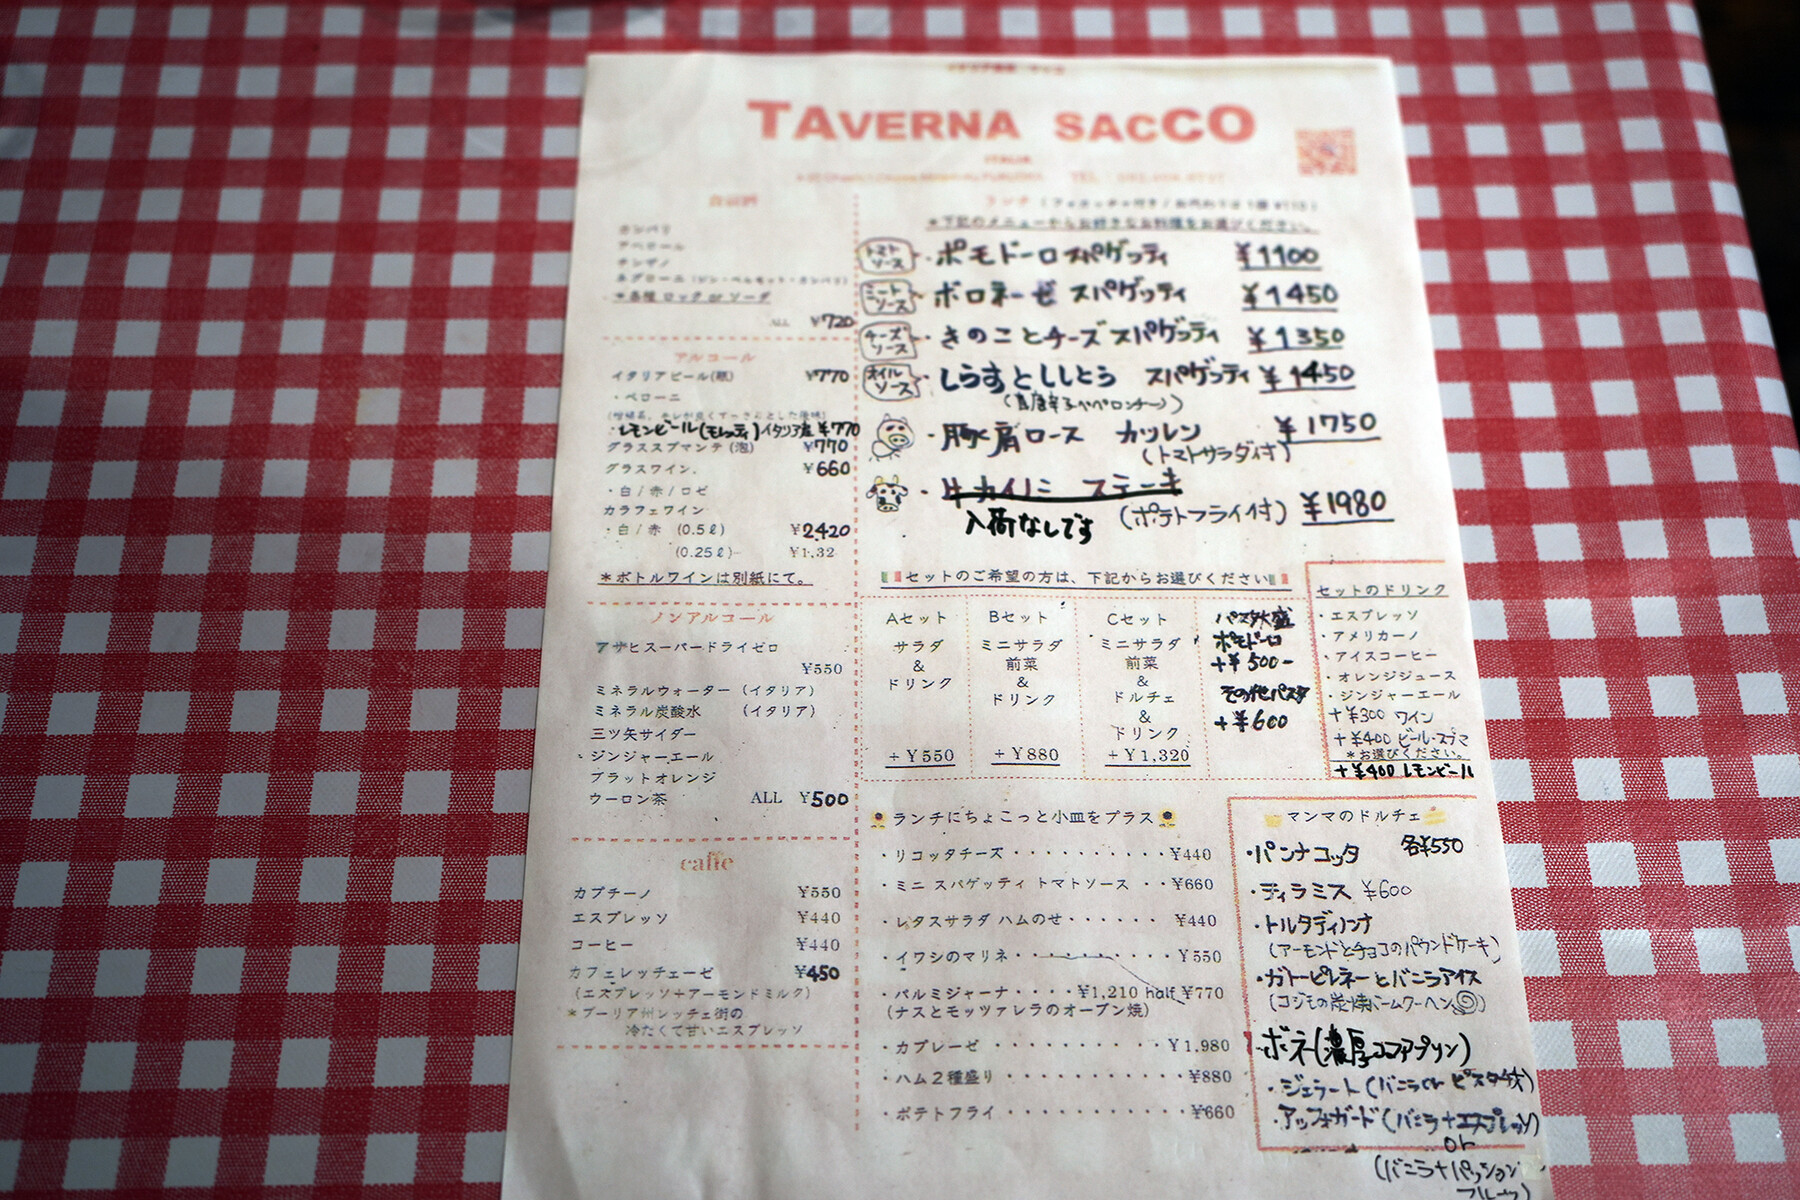 TAVERNA SACCO
ITALIA
食前酒
カンパリ
アペロール
チンザノ
ネグローニ (ジン・ベルモット・カンパリ)
*各種 ロック or ソーダ
ALL ¥720
アルコール
イタリアビール(瓶) ¥770
・ペローニ
・レモンビール(モレッティ)イタリア産 ¥770
グラススプマンテ(泡) ¥770
グラスワイン. ¥660
・白/赤/ロゼ
カラフェワイン
・白/赤 (0.5ℓ) ¥2420
(0.25ℓ) ¥1,32
*ボトルワインは別紙にて。
ノンアルコール
アサヒスーパードライゼロ
¥550
ミネラルウォーター (イタリア)
ミネラル炭酸水 (イタリア)
三ツ矢サイダー
ジンジャーエール
ブラットオレンジ
ウーロン茶 ALL ¥500
caffe
カプチーノ ¥550
エスプレッソ ¥440
コーヒー ¥440
カフェレッチェーゼ ¥450
(エスプレッソ+アーモンドミルク)
*プーリア州レッチェ街の
冷たくて甘いエスプレッソ
ランチ (フォカッチャ付き/おかわりは1個¥110)
*下記のメニューからお好きなお料理をお選びください。
トマトソース ・ポモドーロ スパゲッティ ¥1100
ミートソース ・ボロネーゼ スパゲッティ ¥1450
チーズソース ・きのことチーズ スパゲッティ ¥1350
オイルソース ・しらすとししとう スパゲッティ ¥1450
・豚肩ロース カツレツ ¥1750
(トマトサラダ付)
・牛カイノミ ステーキ
(ポテトフライ付) ¥1980
入荷なしです
セットのご希望の方は、下記からお選びください
Aセット
サラダ
&
ドリンク
+¥550
Bセット
ミニサラダ
前菜
&
ドリンク
+¥880
Cセット
ミニサラダ
前菜
&
ドルチェ
&
ドリンク
+¥1,320
パスタ大盛
ポモドーロ
+¥500-
その他パスタ
+¥600
セットのドリンク
・エスプレッソ
・アメリカーノ
・アイスコーヒー
・オレンジジュース
・ジンジャーエール
+¥300 ワイン
+¥400 ビール・スプマ
*お選びください。
+¥400 レモンビール
ランチにちょこっと小皿をプラス
・リコッタチーズ・・・・・・・・・・¥440
・ミニ スパゲッティ トマトソース ・・¥660
・レタスサラダ ハムのせ・・・・・・ ¥440
・イワシのマリネ・・・・・・・・・・¥550
・パルミジャーナ・・・・¥1,210 half ¥770
(ナスとモッツァレラのオーブン焼)
・カプレーゼ ・・・・・・・・・・¥1,980
・ハム2種盛り ・・・・・・・・・・・¥880
・ポテトフライ ・・・・・・・・・・・¥660
マンマのドルチェ
・パンナコッタ 各¥550
・ティラミス ¥600
・トルタディノンナ
(アーモンドとチョコのパウンドケーキ)
・ガトーピレネーとバニラアイス
(コジモの炭焼バームクーヘン)
・ボネ(濃厚ココアプリン)
・ジェラート(バニラ or ピスタチオ)
・アッフォガード(バニラ+エスプレッソ)
or
(バニラ+パッション
フルーツ)